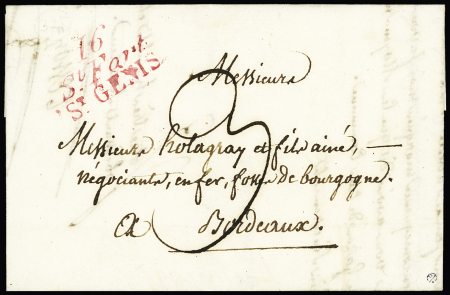 16
St. Fort
St GENIS
Messieurs
Messieurs holagray et fils ainé, —
négociants, en fer, fosse de bourgogne.
a Bordeaux.
3